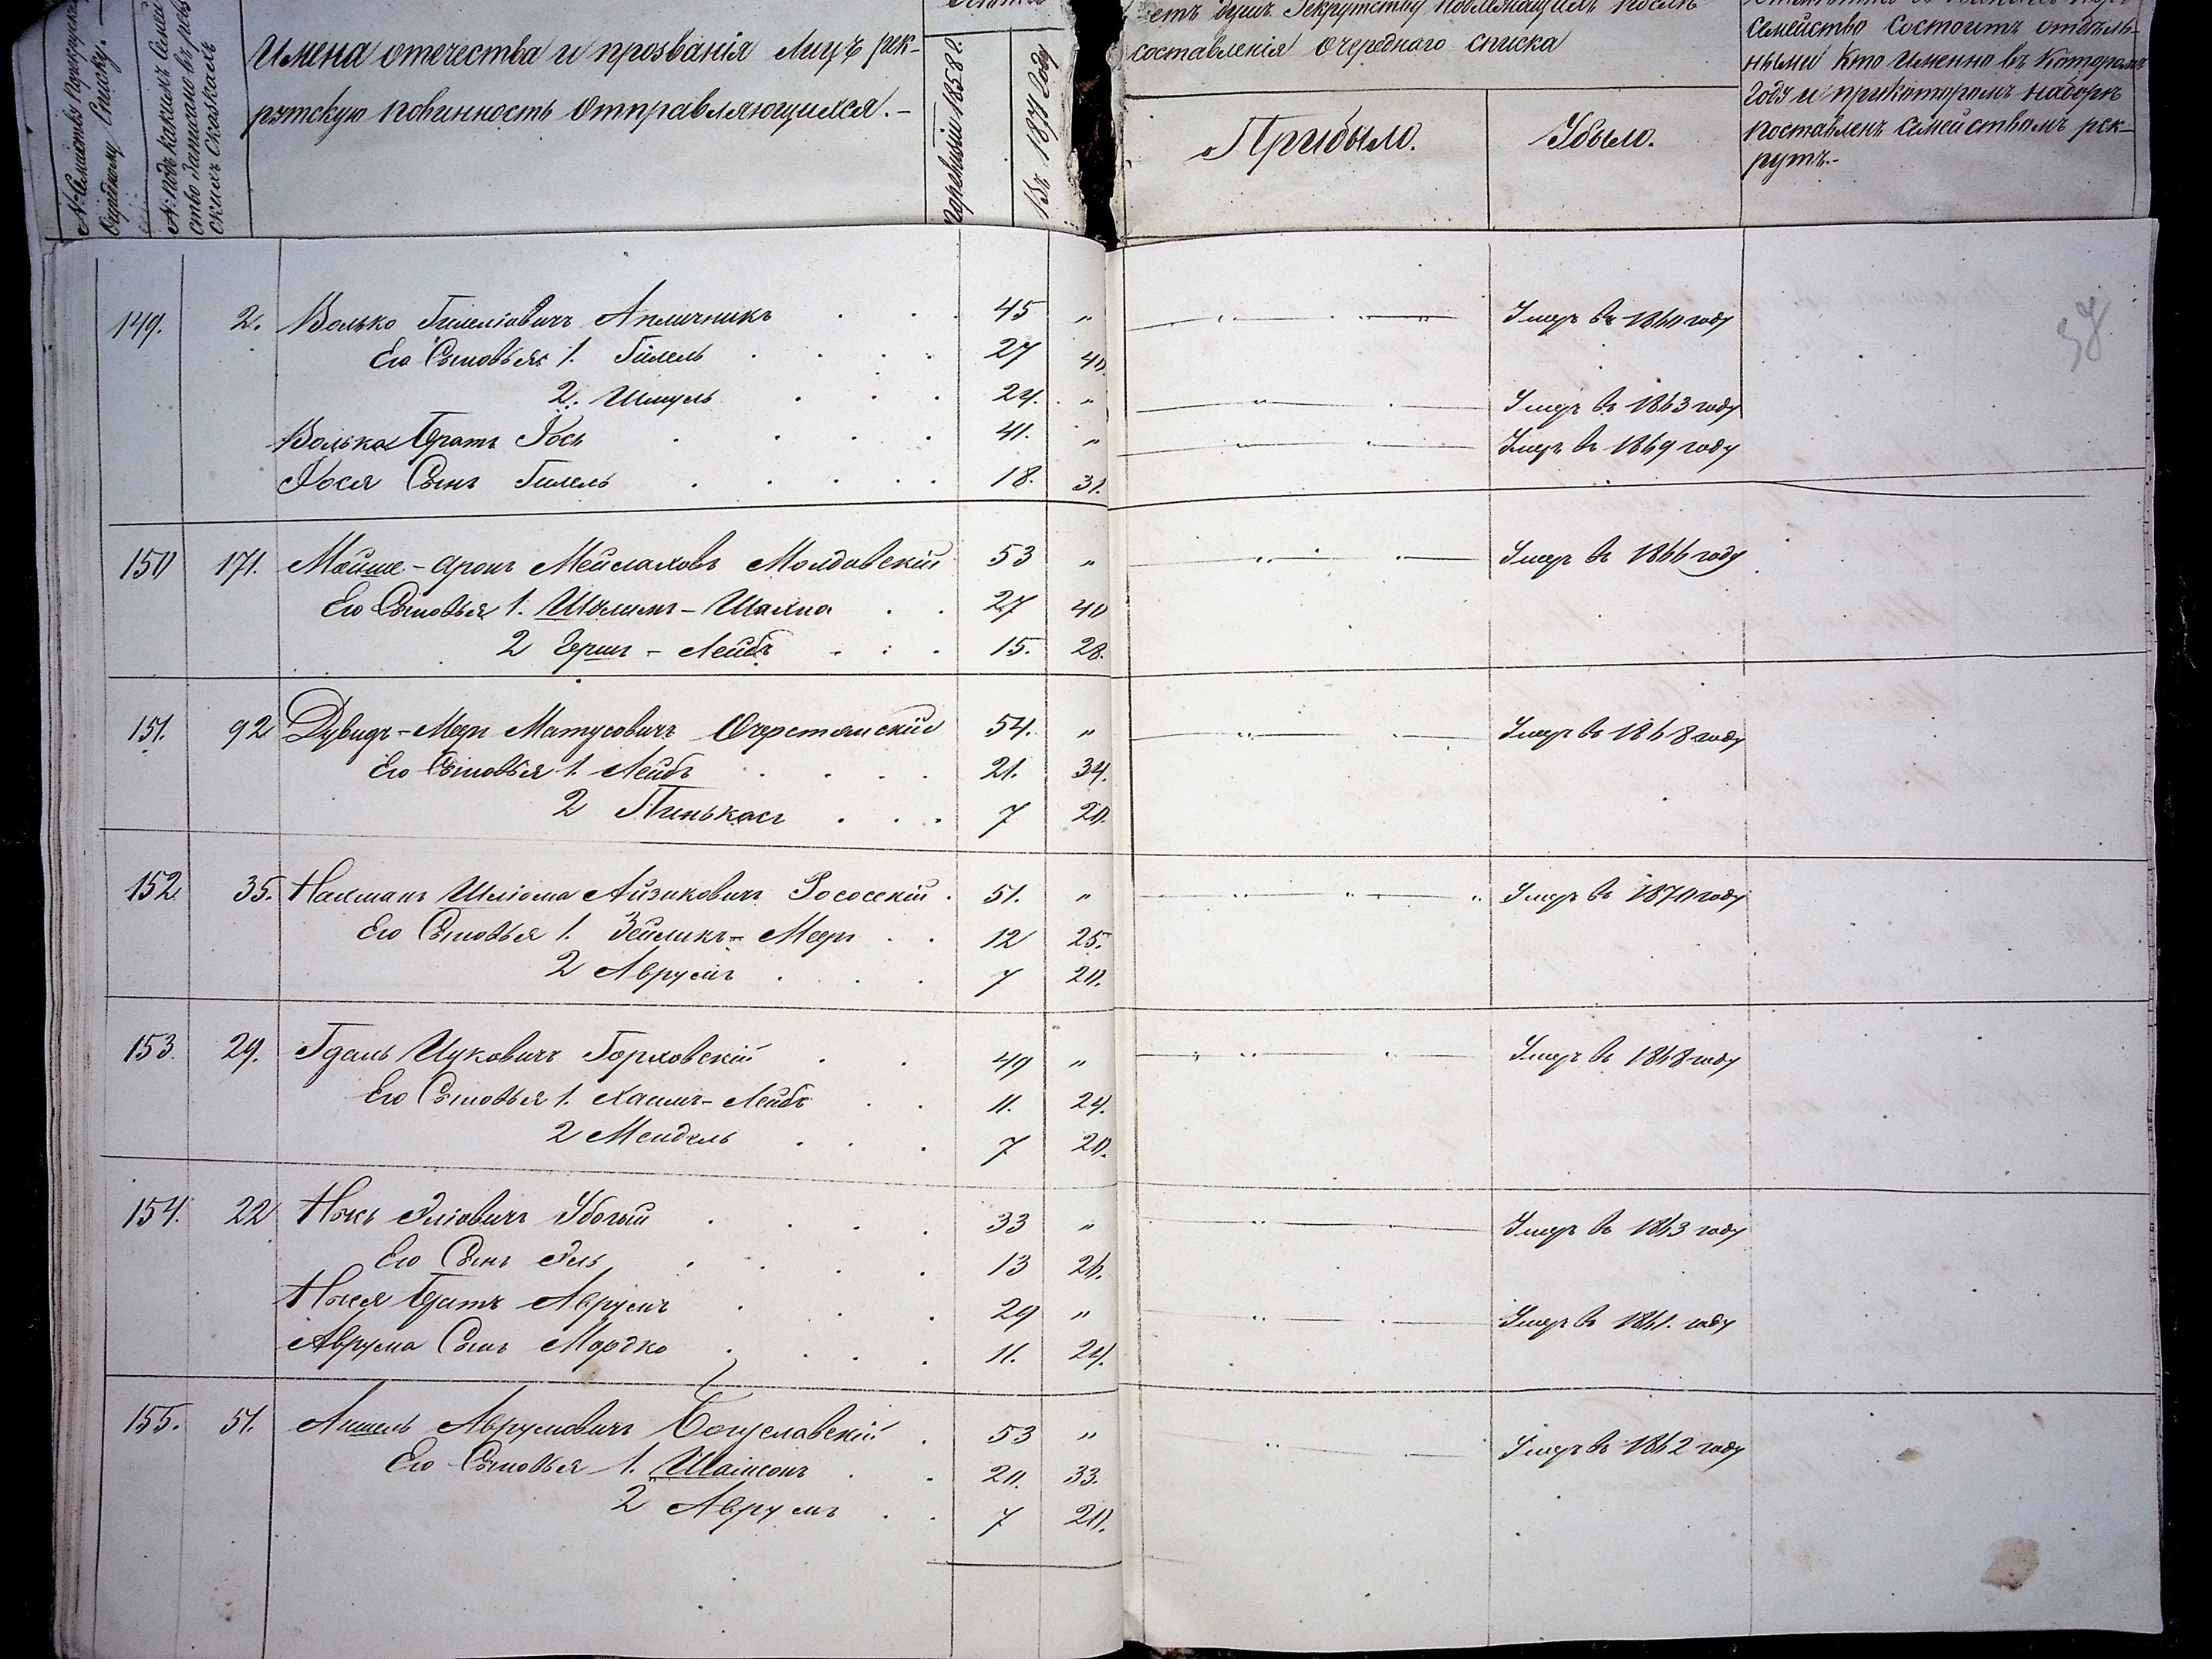 № Семейства по рекрутскому
Очередному Списку.
№ подъ какимъ Семей
ство записано въ рев
скихъ Сказкахъ
Имена отечества и прозванія лицъ рек-
рутскую повинность отправляющихся.-
По ревизіи 1858 г.
Въ 1871 году
составленія очереднаго списка
Прибыло.
Убыло.
Семейство состоитъ отдѣль-
ными Кто Именно въ Которомъ
Году и прикоторомъ наборѣ
поставленъ Семействомъ рек-
рутъ.-
38
149. 2. Волько Гилелювичъ Апличникъ 45 " Умеръ въ 1860 году
Его Сыновья 1. Гилель 27 40.
2. Шмуль 24. " Умеръ въ 1863 году
Волька братъ Іось 41. " Умеръ въ 1869 году
Іося Сынъ Гилель 18. 31.
150 171. Мойше-Аронъ Мейлаховъ Молдавскій 53 " Умеръ въ 1866 году
Его Сыновья 1. Шулимъ-Шахна 27 40
2 Гершъ-Лейбъ 15. 28.
151. 92 Дувидъ-Меръ Матусовичъ 54. " Умеръ въ 1868 году
Его Сыновья 1. Лейбъ 21. 34.
2 Пинькасъ 7 20.
152 35. Нахманъ Шлiома Айзиковичъ Рососскій 51. " Умеръ въ 1870 году
Его Сыновья 1. Зейликъ-Меръ 12 25.
2 Аврумъ 7 20.
153. 29. Гдаль Ицковичъ Горховскій 49 " Умеръ въ 1868 году
Его Сыновья 1. Хаимъ-Лейбъ 11. 24.
2 Мендель 7 20.
154. 22 Эліовичъ Убогій 33 " Умеръ въ 1863 году
Его Сынъ Эль 13 26.
братъ Аврумъ 29 " Умеръ въ 1861. году
Аврума Сынъ Мордко 11. 24.
155. 51. Аншель Аврумовичъ Богуславскій 53 " Умеръ въ 1862 году
Его Сыновья 1. Шаінсонъ 20. 33.
2 Аврумъ 7 20.